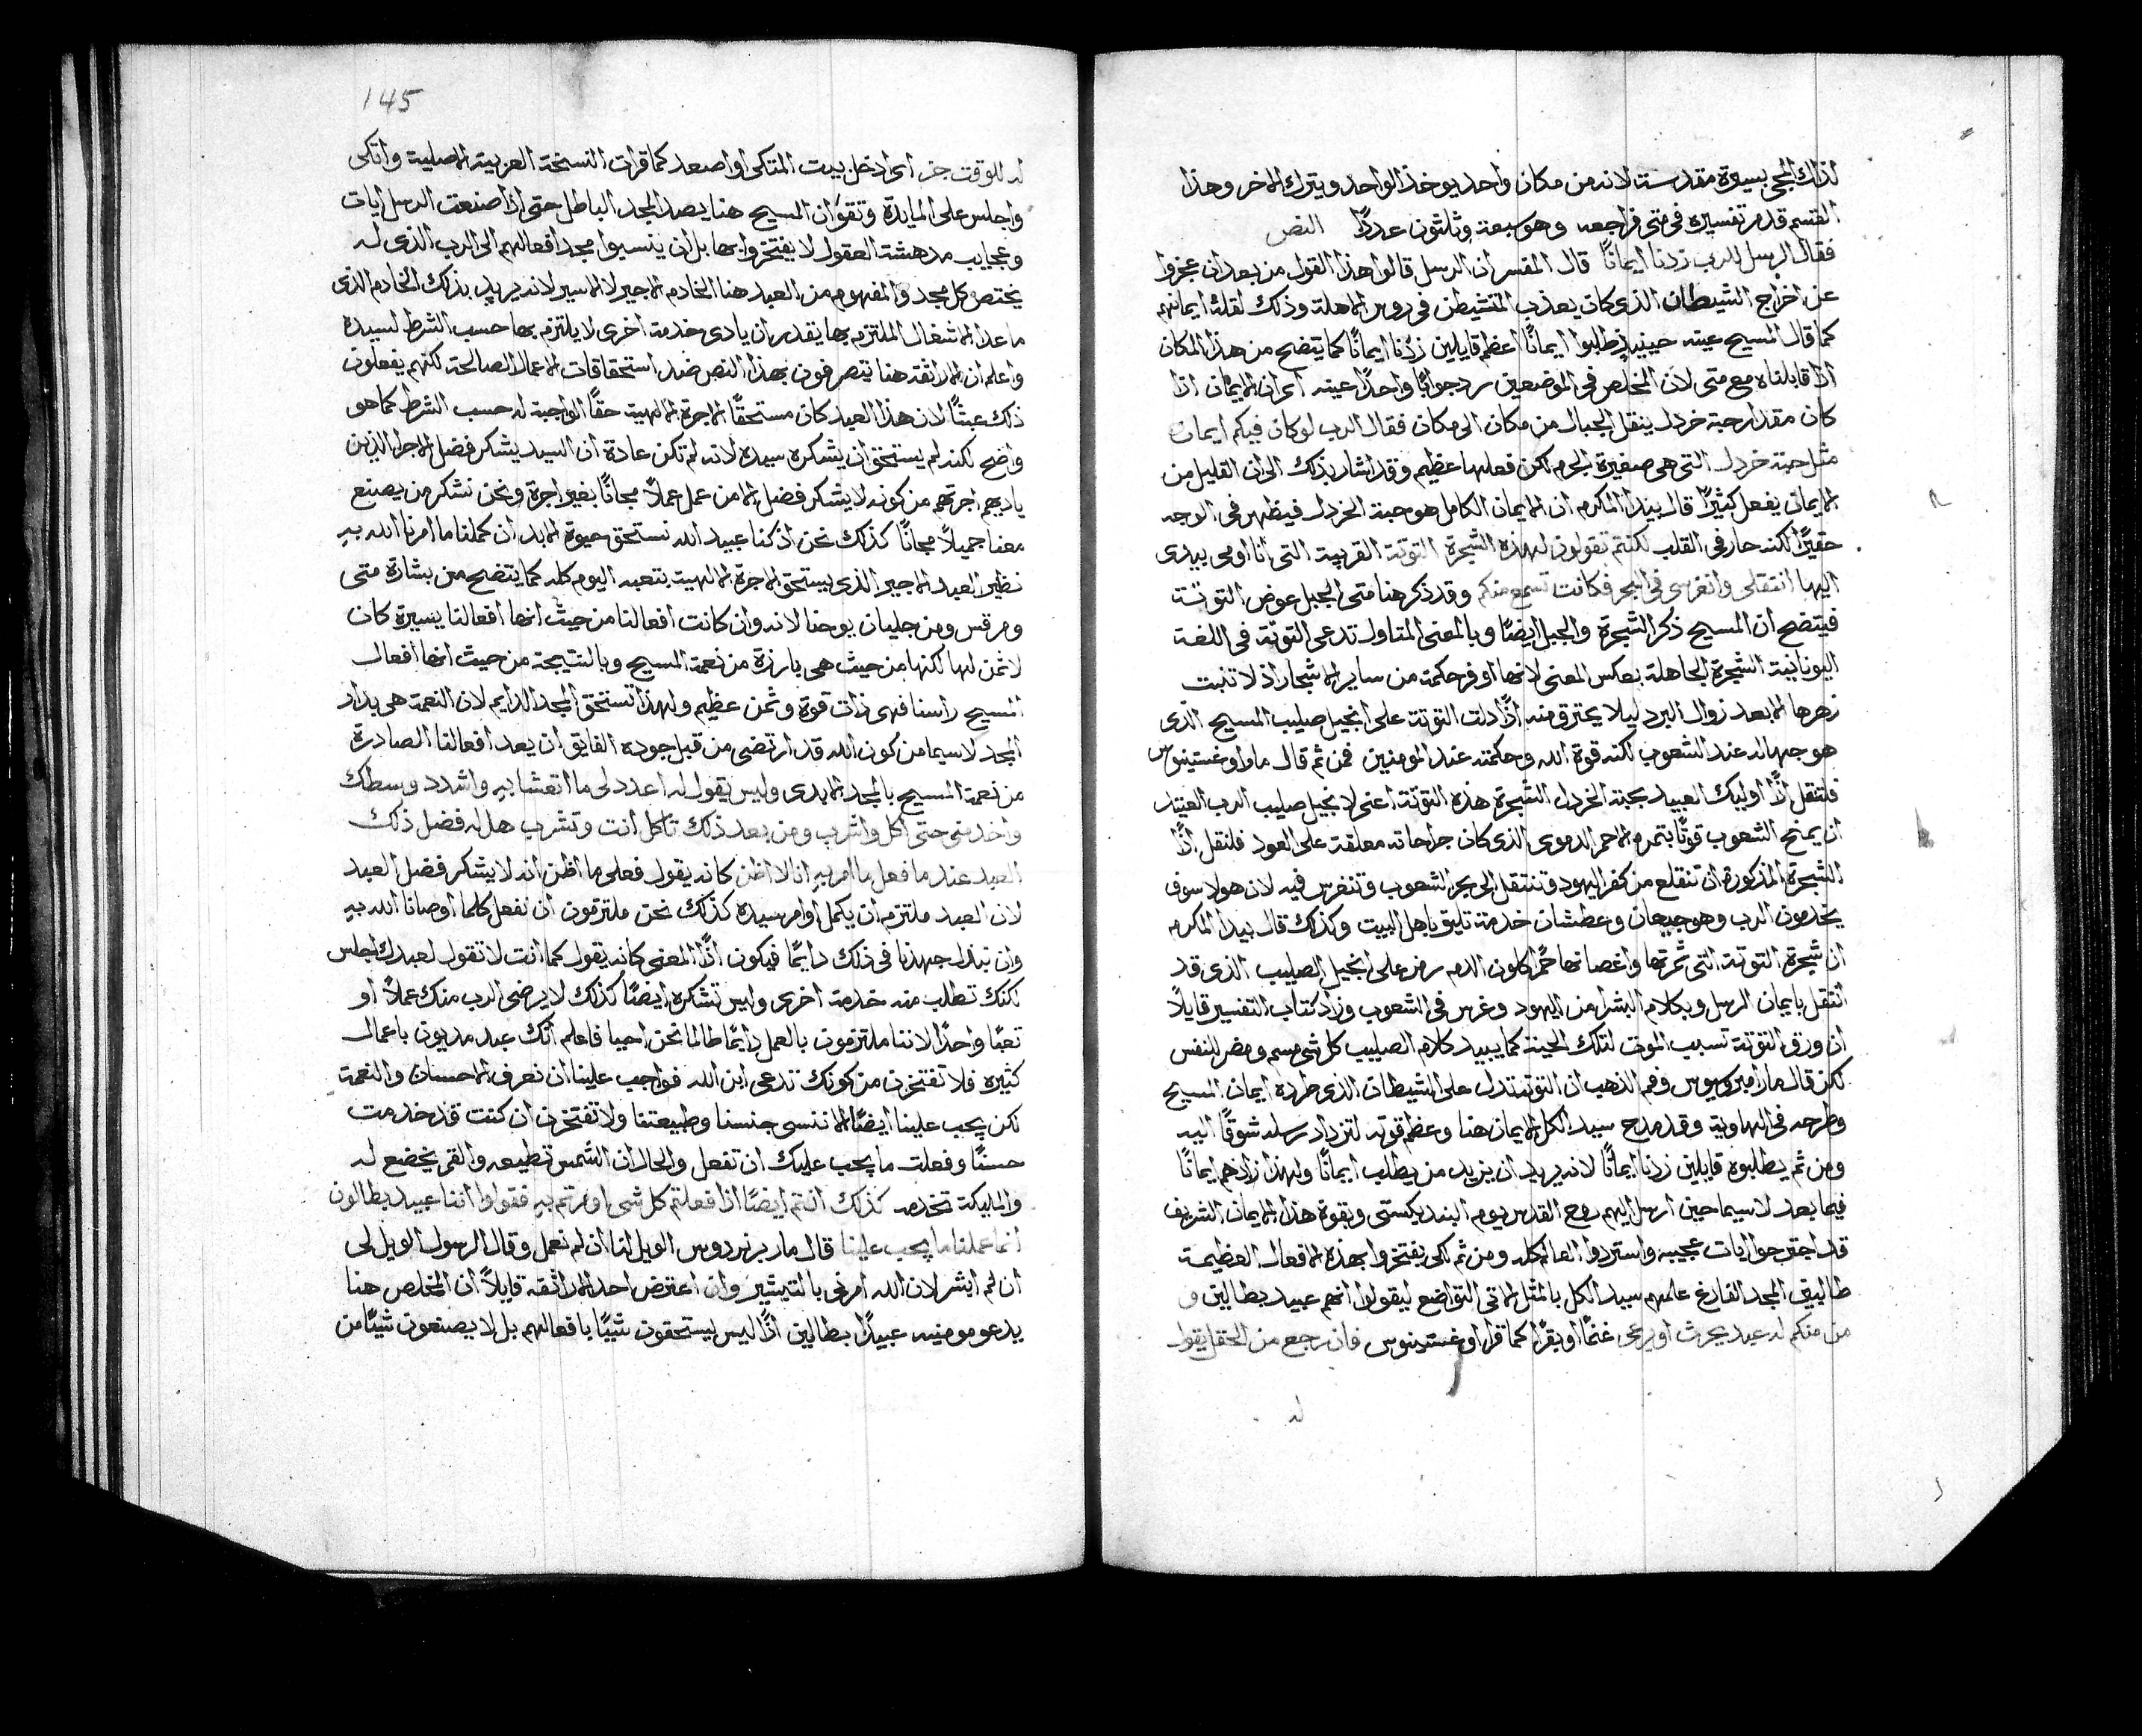 لذلك المجى بسيرة مقدسة لانه من مكان واحد يوخذ الواحد ويترك الاخر وهذا
القسم قد مر تفسيره فى متى فراجعه وهو سبعة وثلثون عددًا النص
فقال الرسل للرب زدنا ايمانًا قال المفسر ان الرسل قالوا هذا القول من بعد ان عجزوا
عن اخراج الشيطان الذى كان يعذب المتشيطن فى روس الاهلة وذلك لقلة ايمانهم
كما قال المسيح عينه حينيذٍ طلبوا ايمانًا اعظم قايلين زدنا ايمانًا كما يتضح من هذا المكان
اذا قابلناه مع متى لان المخلص فى الموضعين رد جوابًا واحدًا عينه اى ان الايمان اذا
كان مقدار حبة خردل ينقل الجبال من مكان الى مكان فقال الرب لو كان فيكم ايمان
مثل حبة خردل التى هى صغيرة الجرم لكن فعلها عظيم وقد اشار بذلك الى ان القليل من
الايمان يفعل كثيرًا قال بيدا المكرم ان الايمان الكامل هو حبة الخردل فيظهر فى الوجه
حقيرًا لكنه حار فى القلب لكنتم تقولون لهذه الشجرة التوتة القريبة التى انا اومى بيدى
اليها انتقلى وانغرسى فى البحر فكانت تسمع منكم وقد ذكر هنا متى الجبل عوض التوتة
فيتضح ان المسيح ذكر الشجرة والجبل ايضًا وبالمعنى المتاول تدعى التوتة فى اللغة
اليونانية الشجرة الجاهلة بعكس المعنى لانها اوفر حكمة من ساير الاشجار اذ لا تنبت
زهرها الا بعد زوال البرد ليلا يحترق منه اذًا دلت التوتة على انجيل صليب المسيح الذى
هو جهالة عند الشعوب لكنه قوة الله وحكمته عند المومنين فمن ثم قال مار اوغستينوس
فلتقل اذًا اوليك العبيد بحبة الخردل الشجرة هذه التوتة اعنى لانجيل صليب الرب العتيد
ان يمنح الشعوب قوتًا بتمره الاحمر الدموى الذى كان جراحاته معلقة على العود فلتقل اذًا
الشجرة المذكورة ان تنقلع من كفر اليهود وتنتقل الى بحر الشعوب وتنغرس فيه لان هولا سوف
يخدمون الرب وهو جيعان وعطشان خدمة تليق باهل البيت وكذلك قال بيدا المكرم
ان شجرة التوتة التى ثمرتها واغصانها حمرا كلون الدم رمز على انجيل الصليب الذى قد
انتقل بايمان الرسل وبكلام البشرا من اليهود وغرس فى الشعوب وزاد كتاب التفسير قايلًا
ان ورق التوتة تسبب الموت لتلك الحية كما يبيد كلام الصليب كل شى مسم ومضر للنفس
لكن قال مار امبروسيوس وفم الذهب ان التوتة تدل على الشيطان الذى طرده ايمان المسيح
وطرحه فى الهاوية وقد مدح سيد الكل الايمان هنا وعظم قوته لتزداد رسله شوقًا اليه
ومن ثم يطلبوه قايلين زدنا ايمانًا لانه يريد ان يزيد من يطلب ايمانًا ولهذا زادهم ايمانًا
فيما بعد لا سيما حين ارسل اليهم روح القدس يوم البنديكستى وبقوة هذا الايمان الشريف
قد اجترحوا ايات عجيبه واستردوا العالم كله ومن ثم لكى يفتخروا بهذه الافعال العظيمة
طالبين المجد الفارغ علمهم سيد الكل بالمثل الاتى التواضع ليقولوا انهم عبيد بطالين و
من منكم له عبد يحرث او يرعى غنمًا او بقرًا كما قرا اوغستينوس فان رجع من الحقل يقول
له
145
له للوقت جز اى ادخل بيت المتكى او اصعد كما قرات النسخة العربية الاصلية واتكى
واجلس على المايدة وتقوا ان المسيح هنا يصد المجد الباطل حتى اذا صنعت الرسل ايات
وعجايب مدهشة العقول لا يفتخروا بها بل ان ينسبوا مجد افعالهم الى الرب الذى له
يختص كل مجد والمفهوم من العبد هنا الخادم الاجير لا الاسير لانه يريد بذلك الخادم الذى
ما عدا الاشغال الملتزم بها يقدر ان يادى خدمة اخرى لا يلتزم بها حسب الشرط لسيده
واعلم ان الاراثقة هنا يتصرفون بهذا النص ضد استحقاقات الاعمال الصالحة لكنهم يفعلون
ذلك عبثًا لان هذا العبد كان مستحقًا الاجرة الالهية حقًا الواجبة له حسب الشرط كما هو
واضح لكنه لم يستحق ان يشكره سيده لانه لم تكن عادة ان السيد يشكر فضل الاجرا الذين
ياديهم اجرتهم من كونه لا يشكر فضل الا من عمل عملاً مجانًا بغير اجرة ونحن نشكر من يصنع
معنا جميلاً مجانًا كذلك نحن اذ كنا عبيد الله نستحق حيوة الابد ان كملنا ما امرنا الله به
نظير العبد الاجير الذى يستحق الاجرة الالهية بتعبه اليوم كله كما يتضح من بشارة متى
ومرقس ومن جليان يوحنا لانه وان كانت افعالنا من حيث انها افعالنا يسيرة كان
لا ثمن لها لكنها من حيث هى بارزة من نعمة المسيح وبالنتيجة من حيث انها افعال
المسيح راسنا فهى ذات قوة وثمن عظيم ولهذا تستحق المجد الدايم لان النعمة هى بدار
المجد لا سيما من كون الله قد ارتضى من قبل جوده الفايق ان يعد افعالنا الصادرة
من نعمة المسيح بالمجد الابدى وليس يقول له اعدد لى ما اتعشا به واشدد وسطك
واخدمنى حتى اكل واشرب ومن بعد ذلك تاكل انت وتشرب هل له فضل ذلك
العبد عند ما فعل ما امر به انا لا اظن كانه يقول فعلى ما اظن انه لا يشكر فضل العبد
لان العبد ملتزم ان يكمل اوامر سيده كذلك نحن ملتزمون ان نفعل كلما اوصانا الله به
وان نبذل جهدنا فى ذلك دايمًا فيكون اذًا المعنى كانه يقول كما انت لا تقول لعبدك اجلس
لكنك تطلب منه خدمة اخرى وليس تشكره ايضًا كذلك لا يرضى الرب منك عملاً او
تعبًا واحدًا لاننا ملتزمون بالعمل دايمًا طالما نحن احيا فاعلم انك عبد مديون باعمال
كثيره فلا تفتخرن من كونك تدعى ابن الله فواجب علينا ان نعرف الاحسان والنعمة
لكن يجب علينا ايضًا الا ننسى جنسنا وطبيعتنا ولا تفتخرن ان كنت قد خدمت
حسنًا وفعلت ما يجب عليك ان تفعل والحال ان الشمس تطيعه والقمر يخضع له
والمليكة تخدمه كذلك انتم ايضًا اذا فعلتم كل شى اومرتم به فقولوا اننا عبيد بطالون
انما عملنا ما يجب علينا قال مار برنردوس الويل لنا ان لم نعمل وقال الرسول الويل لى
ان لم ابشر لان الله امرنى بالتبشير وان اعترض احد الاراثقه قايلاً ان المخلص هنا
يدعو مومنيه عبيدًا بطالين اذًا ليس يستحقون شيًا بافعالهم بل لا يصنعون شيًا من